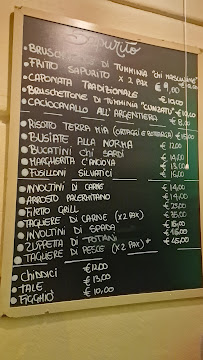 Sapurito
BRUSCHETTONE DI TUMMINIA "CHI MASCULINE"
FRITTO SAPURITO X 2 PAX € 9,00
CAPONATA TRADIZIONALE
BRUSCHETTONE DI TUMMINIA "CUNZATU" € 10,00
CACIOCAVALLO ALL'ARGENTIERA
RISOTTO TERRA MIA (ORTAGGI E BOTTARGA) € 15,00
BUSIATE ALLA NORMA € 12,00
BUCATINI CHI SARDI € 14,00
MARGHERITA C'ANCIOVA € 13,00
FUSILLONI SILVATICI € 15,00
INVOLTINI DI CARNE € 14,00
ARROSTO PALERMITANO € 14,00
FILETTO GRILL € 23,00
TAGLIERE DI CARNE (X2 PAX) € 35,00
INVOLTINI DI SPADA € 15,00
ZUPPETTA DI TOTANI € 16,00
TAGLIERE DI PESCE (X2 PAX) * € 45,00
CHIDDICI € 12,00
TALE € 13,00
FIGGHIÓ € 10,00